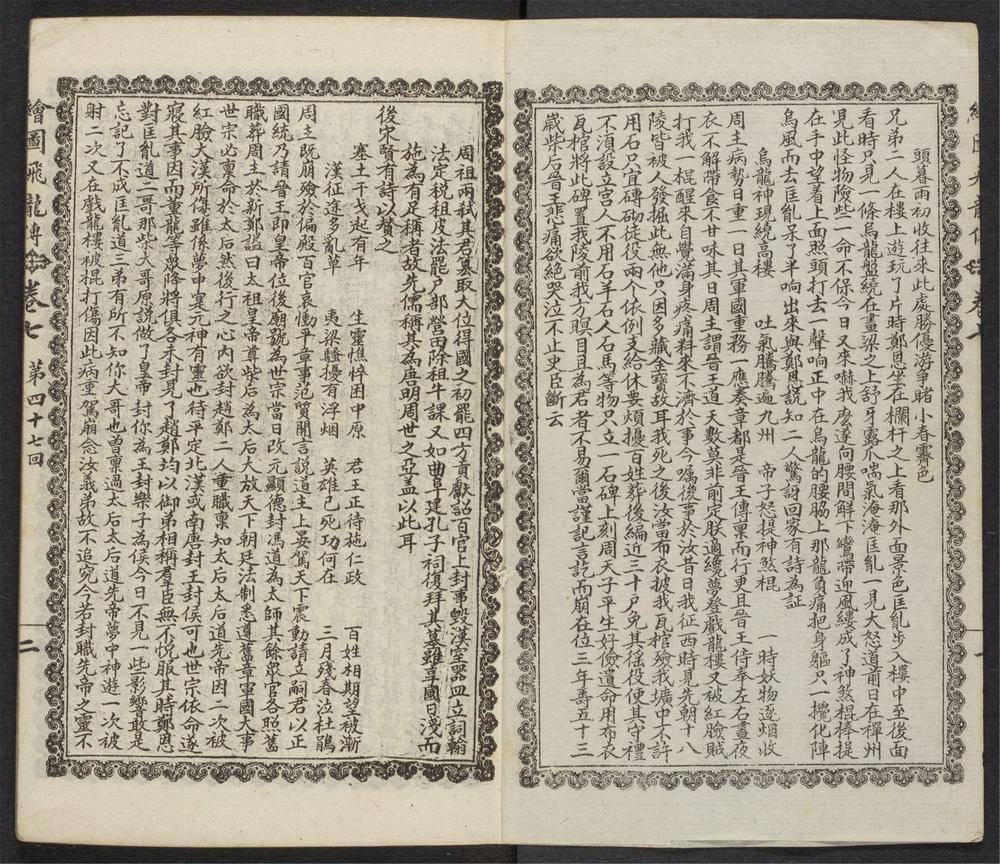 頭暮雨初收往來此處勝優游爭睹小春霽色
兄弟二人在樓上遊玩了片時鄭恩坐在欄杆之上看那外面景色匡亂步入樓中至後面
看時只見一條烏龍盤繞在畫梁之上舒牙露爪喘氣淹淹匡亂一見大怒道前日在禪州
見此怪物險些一命不保今日又來嚇我麽遂向腰間解下鸞帶迎風縷成了神煞棍棒提
在手中望着上面照頭打去一聲响正中在烏龍的腰脇上那龍負痛把身軀只一攪化陣
烏風而去匡亂呆了半响出來與鄭恩說知二人驚訝回家有詩為証
烏龍神現繞高樓　吐氣騰騰遍九州　帝子怒提神煞棍　一時妖物逐烟收
周主病勢日重一日其軍國重務一應奏章都是晉王傳稟而行更且晉王侍奉左右晝夜
衣不解帶食不甘味其日周主謂晉王道天數莫非前定朕適纔夢登戲龍樓又被紅臉賊
打我一棍醒來自覺滿身疼痛料來不濟於事今囑後事於汝昔日我征西時見先朝十八
陵皆被人發掘此無他只因多藏金寶故耳我死之後汝當布衣披我瓦棺殮我壙中不許
用石只宜磚砌徒役兩个依例支給休要煩擾百姓葬後編近三十戶免其徭役使其守禮
不湏設立宮人不用石羊石人石馬等物只立一石碑上刻周天子平生好儉遺命用布衣
瓦棺將此碑置我陵前我方瞑目且為君者不易爾當謹記言訖而崩在位三年壽五十三
歲柴后晉王悲痛欲絕哭泣不止史臣斷云
周祖兩弒其君篡取大位得國之初罷四方貢獻詔百官上封事毀漢室器皿泣詞翰
法定税租皮法罷戶部營田除租牛課又如曲阜建孔子祠復拜其墓雖享國日淺而
施為有足稱者故先儒稱其為唐明周世之亞盖以此耳
後宋賢有詩以贊之
塞土干戈起有年　生靈憔悴困中原　君王正待施仁政　百姓相期望被漸
漢征途多亂草　夷梁騷擾有浮烟　英雄已死功何在　三月殘春泣杜鵑
周主既崩殯於偏殿百官哀慟平章事范質開言說道主上晏駕天下震動請立嗣君以正
國統乃請晉王即皇帝位後廟號為世宗當日改元顯德封馮道為太師其餘眾官各照舊
職葬周主於新鄭謚曰太祖皇帝尊柴后為太后大放天下朝廷法制悉遵舊章軍國大事
世宗必稟命於太后然後行之心內欲封趙鄭二人重職稟知太后太后道先帝因二次被
紅臉大漢所傷雖係夢中寔元神有靈也待平定北漢或南唐封王封侯可也世宗依命遂
寢其事因而董龍等眾降將俱各未封見了趙鄭均以御弟相稱羣臣無不悅服其時鄭恩
對匡亂道二哥那柴大哥原說做了皇帝封你為王封樂子為侯今日不見一些影響敢是
忘記了不成匡亂道三弟有所不知你大哥也曾稟過太后太后道先帝夢中神遊一次被
射二次又在戲龍樓被棍打傷因此病重駕崩念汝義弟故不追究今若封職先帝之靈不
繪圖飛龍傳　卷七　第四十七回　二